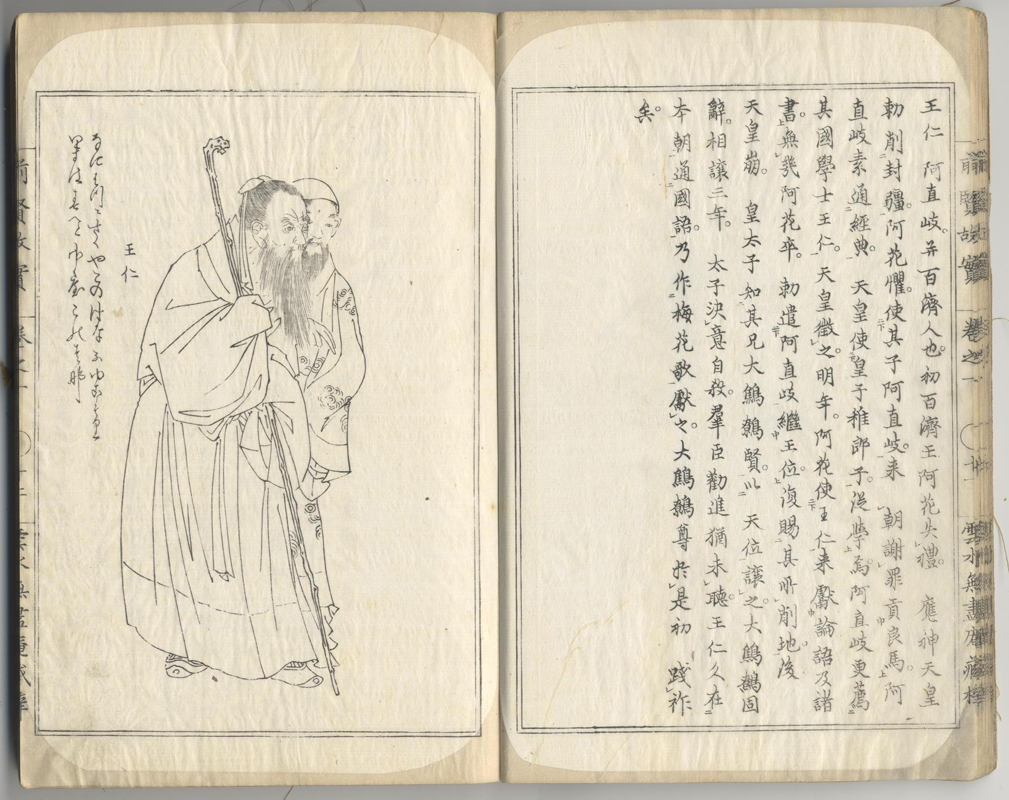 王仁 阿直岐。并百濟人也。初百濟王阿花失禮。 應神天皇
勅削封疆。阿花懼。使其子阿直岐。来 朝謝罪貢良馬。阿
直岐素通經典。 天皇使皇子稚郎子。從學焉。阿直岐更薦
其國學士王仁。天皇徵之。明年。阿花使王仁来獻論語及諸
書。無幾阿花卒。 勅遣阿直岐繼王位。復賜其所削地。後
天皇崩。 皇太子知其兄大鷦鷯賢。以 天位讓之。大鷦鷯固
辭。相讓三年。 太子決意自殺。羣臣勸進猶未聽。王仁久在
本朝通國語。乃作梅花歌獻之。大鷦鷯尊於是初 踐祚
矣。
前賢故實 卷之一
王仁
前賢故實